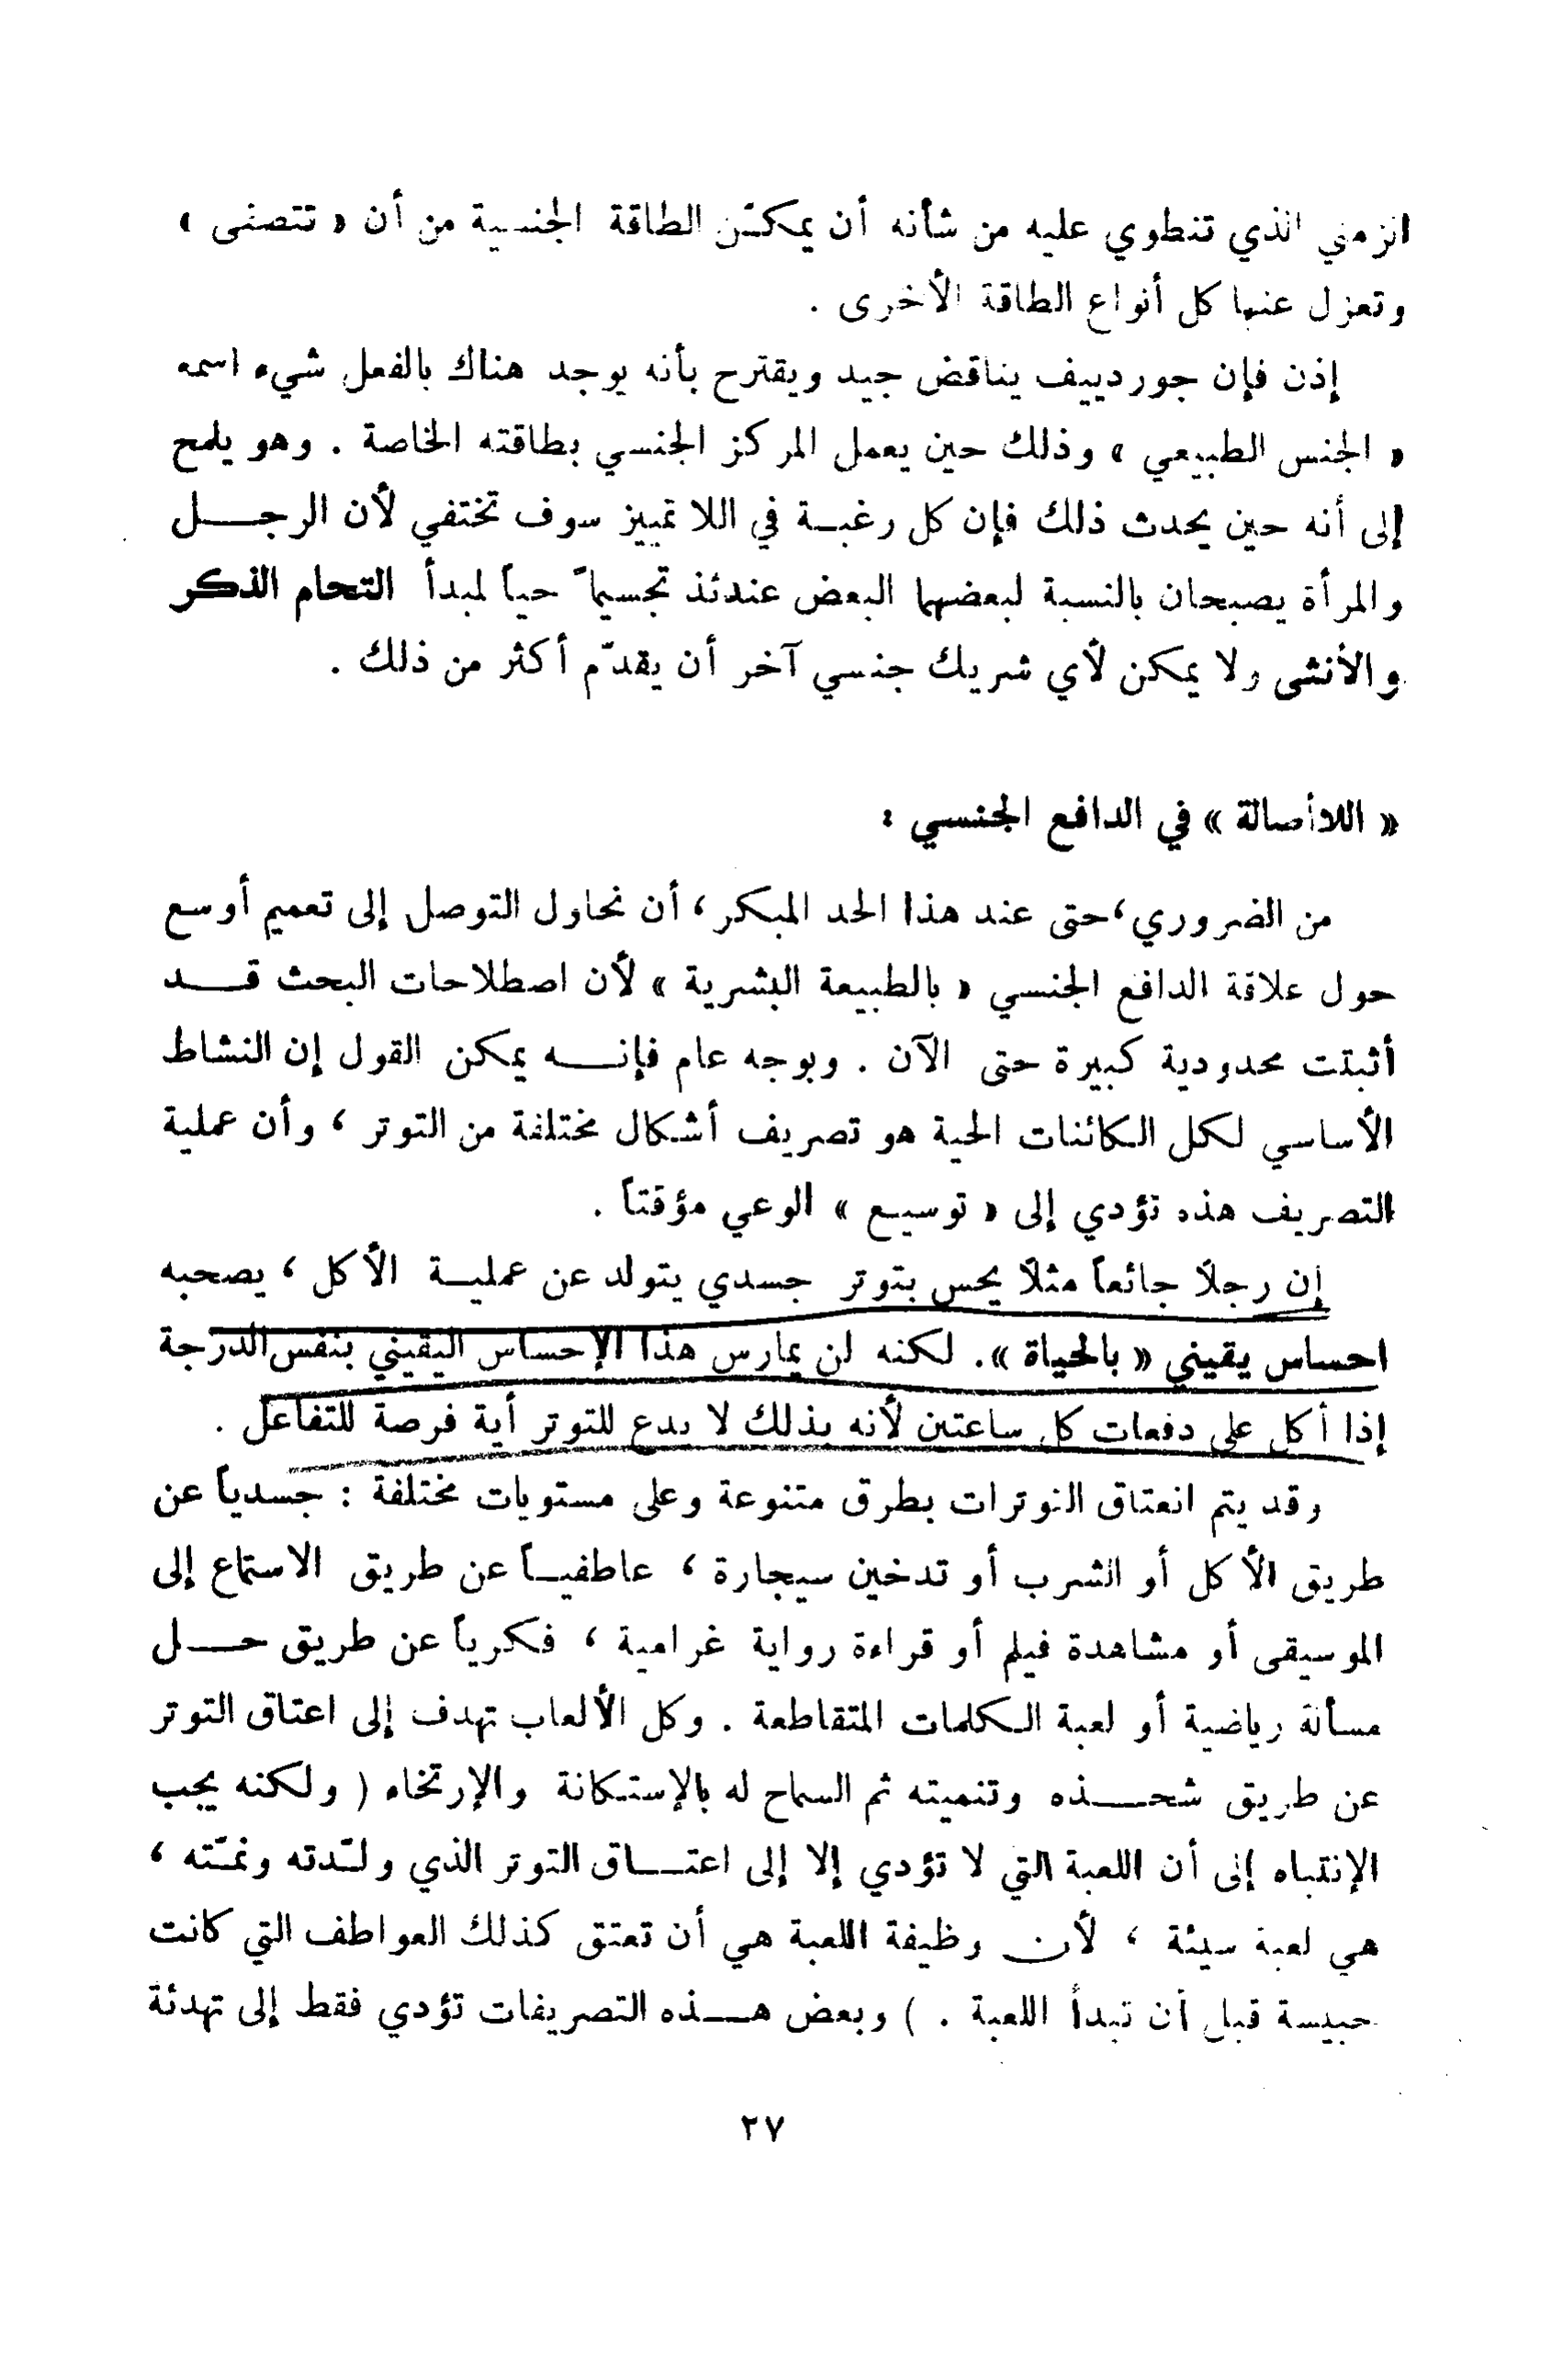 الزمني الذي تنطوي عليه من شأنه أن يمكّن الطاقة الجنسية من أن « تتصفى »
وتعزل عنها كل أنواع الطاقة الأخرى .
إذن فإن جوردييف يناقض جيد ويقترح بأنه يوجد هناك بالفعل شيء اسمه
« الجنس الطبيعي » وذلك حين يعمل المركز الجنسي بطاقته الخاصة . وهو يلمح
إلى أنه حين يحدث ذلك فإن كل رغبة في اللا تمييز سوف تختفي لأن الرجل
والمرأة يصبحان بالنسبة لبعضهما البعض عندئذ تجسيماً حياً لمبدأ التحام الذكر
والأنثى ولا يمكن لأي شريك جنسي آخر أن يقدّم أكثر من ذلك .
« اللاأصالة » في الدافع الجنسي :
من الضروري، حتى عند هذا الحد المبكر ، أن نحاول التوصل إلى تعميم أوسع
حول علاقة الدافع الجنسي « بالطبيعة البشرية » لأن اصطلاحات البحث قد
أثبتت محدودية كبيرة حتى الآن . وبوجه عام فإنه يمكن القول إن النشاط
الأساسي لكل الكائنات الحية هو تصريف أشكال مختلفة من التوتر ، وأن عملية
التصريف هذه تؤدي إلى « توسيع » الوعي مؤقتاً .
إن رجلاً جائعاً مثلاً يحس بتوتر جسدي يتولد عن عملية الأكل ، يصحبه
احساس يقيني « بالحياة ». لكنه لن يمارس هذا الإحساس اليقيني بنفس الدرجة
إذا أكل على دفعات كل ساعتين لأنه بذلك لا يدع للتوتر أية فرصة للتفاعل .
وقد يتم انعتاق التوترات بطرق متنوعة وعلى مستويات مختلفة : جسدياً عن
طريق الأكل أو الشرب أو تدخين سيجارة ، عاطفياً عن طريق الاستماع إلى
الموسيقى أو مشاهدة فيلم أو قراءة رواية غرامية ، فكرياً عن طريق حل
مسألة رياضية أو لعبة الكلمات المتقاطعة . وكل الألعاب تهدف إلى اعتاق التوتر
عن طريق شحذه وتنميته ثم السماح له بالإستكانة والإرتخاء ( ولكنه يجب
الإنتباه إلى أن اللعبة التي لا تؤدي إلا إلى اعتاق التوتر الذي ولّدته ونمّته ،
هي لعبة سيئة ، لأن وظيفة اللعبة هي أن تعتق كذلك العواطف التي كانت
حبيسة قبل أن تبدأ اللعبة . ) وبعض هذه التصريفات تؤدي فقط إلى تهدئة
٢٧